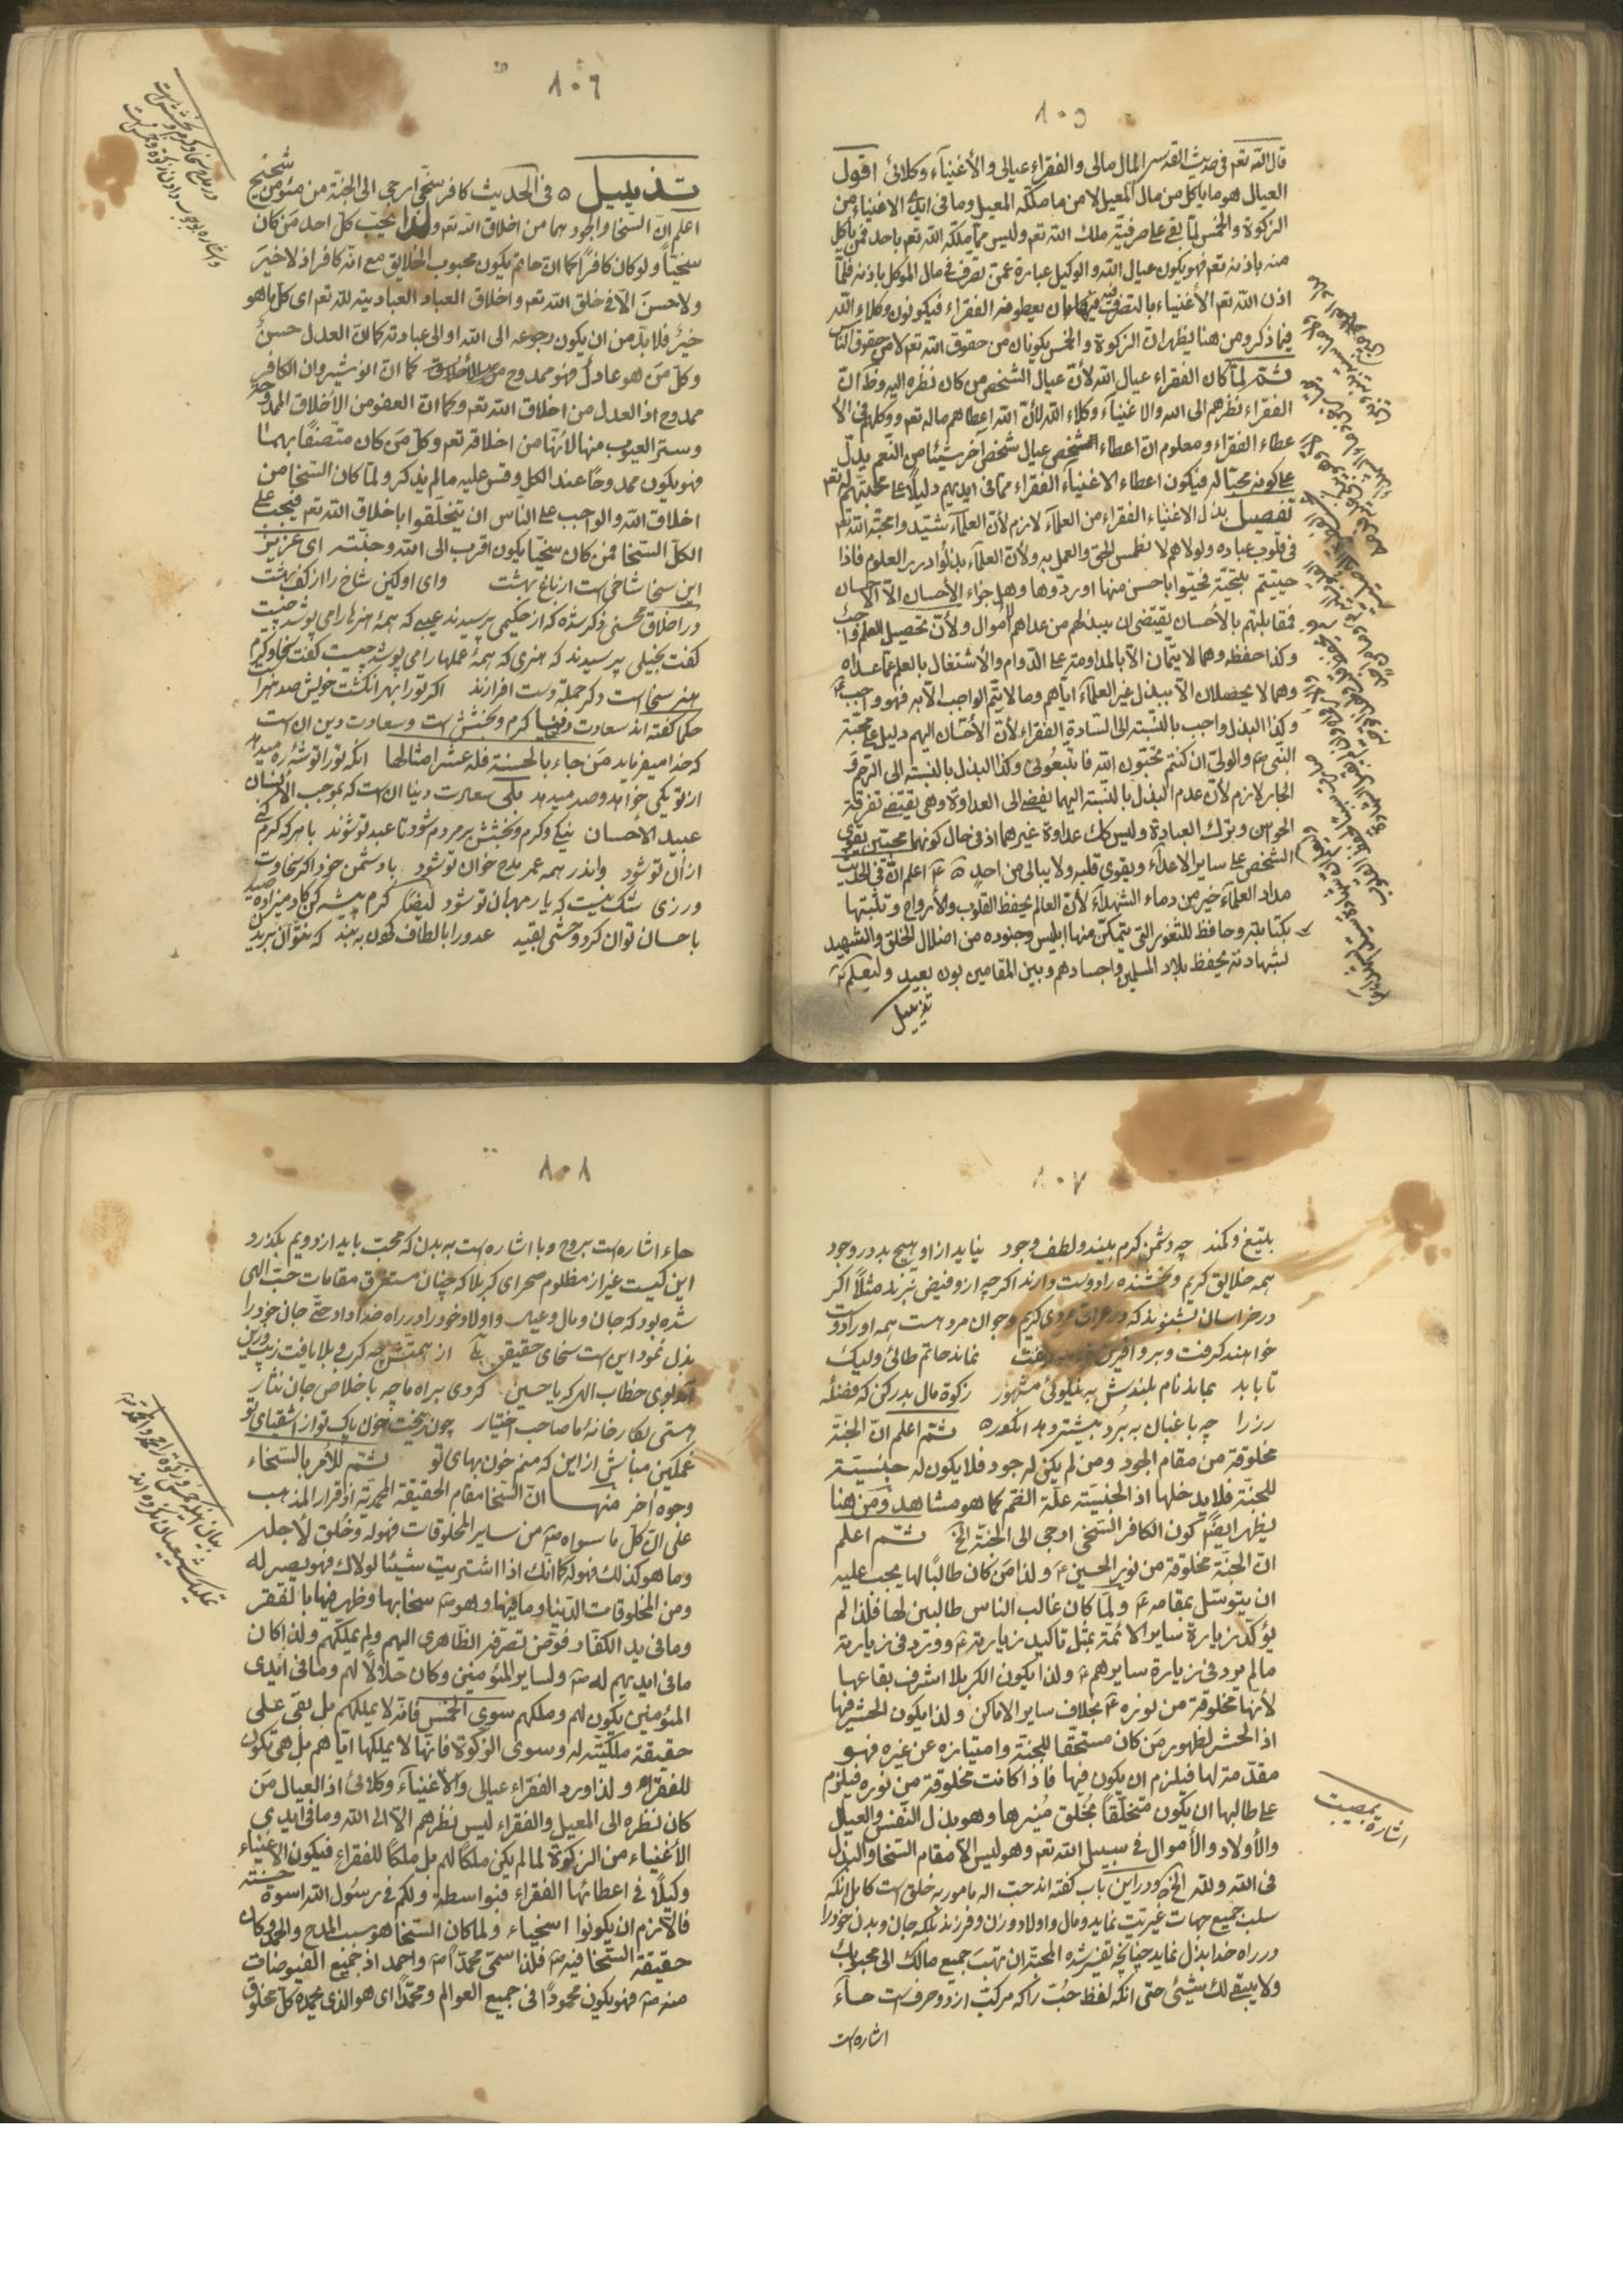 ١٠٥
قال الله تعم فی حدیث القدسی المال مالی والفقراء عیالی والأغنیآء وکلائی اقول
العیال هو ما یاکل من مال المعیل لا من ما ملکه المعیل وما فی ایدی الاغنیاء من
الزکوة والخمس لما بقی علی صرفیة ملك الله تعم ولیس مما ملکه الله تعم باحد فمن یاکل
منه باذنه تعم فهو یکون عیال الله والوکیل عبارة عمن تصرف فی مال الموکل باذنه فلما
اذن الله تعم الأغنیاء بالتصرف فیه بان یعطوا منه الفقراء فیکونون وکلاء الله
فیما ذکر ومن هنا یظهر ان الزکوة والخمس یکونان من حقوق الله تعم لا من حقوق الناس
ثم لما کان الفقراء عیال الله لأن عیال الشخص من کان نظره الیه وظ ان
الفقراء نظرهم الی الله والاغنیآء وکلاء الله لأن الله اعطاهم ماله تعم ووکلهم فی الا
عطاء الفقراء ومعلوم ان اعطاء الشخص عیال شخص اخر شیئا من النعم یدل
علی کونه محبا له فیکون اعطاء الاغنیآء الفقراء مما فی ایدیهم دلیلا علی محبتهم له تعم
تفصیل بذل الاغنیاء الفقراء من العلمآء لازم لأن العلمآء شیدوا محبة الله تعم
فی قلوب عباده ولولاهم لانطمس الحق والعمل به ولأن العلمآء بذلوا در العلوم فاذا
حییتم بتحیة فحیوا باحسن منها او ردوها وهل جزاء الأحسان الا الاحسان
فمقابلتهم بالأحسان یقتضی ان یبذلهم من عداهم الأموال ولأن تحصیل العلم واجب
وکذا حفظه وهما لا یتمان الا بالمداومة علی الدوام والأشتغال بالعلم عما عداه
وهما لا یحصلان الا ببذل غیر العلمآء ایاهم وما لا یتم الواجب الا به فهو واجب
وکذا البذل واجب بالنسبة الی السادة الفقراء لأن الأحسان الیهم دلیل علی محبة
النبی والولی ان کنتم تحبون الله فاتبعونی وکذا البذل بالنسبة الی الرحم و
الجار لازم لأن عدم البذل بالنسبة الیهما یفضی الی العداوة وهی یقتضی تفرقة
الحواس وبترك العبادة ولیس کك عداوة غیرهما اذ فی حال کونهما محبتین یقوی
الشخص علی سایر الاعدآء ویقوی قلبه ولا یبالی من احد اعلم ان فی الحدیث
مداد العلمآء خیر من دماء الشهدآء لأن العالم یحفظ القلوب والأرواح وتثبتها
بکتابته وحافظ للثغور التی یتمکن منها ابلیس وجنوده من اضلال الخلق والشهید
بشهادته یحفظ بلاد المسلمین واجسادهم وبین المقامین بون بعید ولیعلم
تذییل
١٠٦
تذییل فی الحدیث کافر سخی ارجی الی الجنة من مئومن شحیح
اعلم ان السخا والجود هما من اخلاق الله تعم ولذا یحب کل احد من کان
سخیا ولو کان کافرا کما ان حاتم یکون محبوب الخلایق مع انه کافر اذ لا خیر
ولا حسن الا فی خلق الله تعم واخلاق العباد العبادیة لله تعم ای کل ما هو
خیر فلا بد من ان یکون رجوعه الی الله او الی عبادته کما ان العدل حسن
وکل من هو عادل فهو ممدوح کما ان انوشیروان الکافر
ممدوح اذ العدل من اخلاق الله تعم وکما ان العفو من الأخلاق الممدوحة
وستر العیوب منها لأنها من اخلاقه تعم وکل من کان متصفا بهما
فهو یکون ممدوحا عند الکل وقس علیه ما لم یذکر ولما کان السخا من
اخلاق الله والواجب علی الناس ان یتخلقوا باخلاق الله تعم فیجب علی
الکل السخا فمن کان سخیا یکون اقرب الی الله وجنته ای عزیز
این سخا شاخی است از باغ بهشت وای او کین شاخ را از کف بهشت
در اخلاق محسنی ذکر شده که از حکیمی پرسیدند عیبی که همهٔ هنرها را می پوشد چیست
گفت بخیلی پرسیدند که هنری که همهٔ عیبها را می پوشد چیست گفت سخا وکرم
هنر سخا است دکر جمله دست افزارند اکر تو را بهر انکشت خویش صد هنرا
حکما گفته اند سعادت دنیا کرم وبخشش است وسعادت دین ان است
که خدا میفرماید من جاء بالحسنة فله عشر امثالها انکه تورا توشهٔ ره میدهد
از تو یکی خواهد وصد میدهد بلکه سعادت دنیا ان است که بموجب الأنسان
عبید الأحسان نیکی وکرم وبخشش بر مردم شود تا عبد تو شوند با هر که کرم کنی
از ان تو شود واندر همه عمر مدح خوان تو شود با دشمن خود اکر سخاوت
ورزی شک نیست که یار مهربان تو شود ایضا کرم پیشه کن کادمیزاده صید
باحسان توان کرد ووحشی بقید عدو را بالطاف کردن ببند که نتوان بریدن
١٠٧
بتیغ وکمند چه دشمن کرم بیند ولطف وجود نیاید از او هیچ بد در وجود
همه خلایق کریم وبخشنده را دوست دارند اکرچه از او فیضی نبرند مثلا اکر
در خراسان بشنوند که در عراق مردی کریم وجوان مرد هست همه او را دوست
خواهند کرفت وبر او افرین نماند حاتم طائی ولیك
تا بابد بماند نام بلندش به نیکوئی مشهور زکوة مال بدر کن که فضلهٔ
رز را چه باغبان به برد بیشتر دهد انکور ثم اعلم ان الجنة
مخلوقة من مقام الجود ومن لم یکن له جود فلا یکون له جنسیة
للجنة فلا یدخلها اذ الجنسیة علة الضم کما هو مشاهد ومن هنا
یظهر ایضا کون الکافر السخی ارجی الی الجنة الخ ثم اعلم
ان الجنة مخلوقة من نور الحسین ولذا من کان طالبا لها یجب علیه
ان یتوسل بمقامه ولما کان غالب الناس طالبین لها فلذا لم
یؤکد زیارة سایر الائمة بمثل تاکید زیارته وورد فی زیارته
ما لم یرد فی زیارة سایرهم ولذا یکون الکربلا اشرف بقاعها
لأنها مخلوقة من نوره بخلاف سایر الاماکن ولذا یکون الحشر فیها
اذ الحشر لظهور من کان مستحقا للجنة وامتیازه عن غیره فهو
مقدمة لها فیلزم ان یکون فیها فاذا کانت مخلوقة من نوره فیلزم
علی طالبها ان یکون متخلقا بخلق منیرها وهو بذل النفس والعیال
والأولاد والأموال فی سبیل الله تعم وهو لیس الا مقام السخا والبذل
فی الله ولله الخ ودر این باب گفته اند حب اله ماموربه خلق است کامل انکه
سلب جمیع جهات غیریت نماید ومال واولاد وزن وفرزند بلکه جان وبدن خود را
در راه خدا بذل نماید چنانچه تفسیر شده المحبة ان تهب جمیع مالك الی محبوبك
ولا یبقی لك شیئی حتی انکه لفظ حب را که مرکب از دو حرف است حآء
اشاره است
اشاره بمصیبت
١٠٨
حاء اشاره است بروح وبا اشاره است به بدن که محب باید از دویم بکذرد
این کیست غیر از مظلوم صحرای کربلا که چنان مستغرق مقامات حب الهی
شده بود که جان ومال وعیال واولاد خود را در راه خدا داد حتی جان خود را
بذل نمود این است سخای حقیقی از همتش چه کرب وبلا یافت زیب وزین
آمد بوی خطاب اله که یا حسین کردی براه ما چه باخلاص جان نثار
هستی بکارخانهٔ ما صاحب اختیار چون ریخت خون پاک تو از اشقیای تو
غمکین مباش از این که منم خون بهای تو ثم للأمر بالسخاء
وجوه اخر منها ان السخا مقام الحقیقة المحمدیة اذ قرار المذهب
علی ان کل ما سواه من سایر المخلوقات فهو له وخلق لأجله
وما هو کذلك فهو له کما انك اذا اشتریت شیئا لولدك فهو یصیر له
ومن المخلوقات الدنیا وما فیها وهو سخا بها وظهر فیها بالفقر
وما فی ید الکفار فوض تصرفه الظاهری الیهم ولم یملکهم ولذا کان
ما فی ایدیهم له ولسایر المئومنین وکان حلالا لهم وما فی ایدی
المئومنین یکون لهم وملکهم سوی الخمس فانه لا یملکهم بل بقی علی
حقیقة ملکیته له وسوی الزکوة فانها لا یملکها ایاهم بل هی تکون
للفقراء ولذا ورد الفقراء عیالی والأغنیآء وکلائی اذ العیال من
کان نظره الی المعیل والفقراء لیس نظرهم الا الی الله وما فی ایدی
الأغنیاء من الزکوة لما لم یکن ملکا لهم بل ملکا للفقراء فیکون الأغنیاء
وکیلا فی اعطائها الفقراء فبواسطة ولکم فی رسول الله اسوة حسنة
فالألزم ان یکونوا اسخیاء ولما کان السخا هو سبب المدح والحمد وکان
حقیقة السخا فیه فلذا سمی محمدا واحمد اذ جمیع الفیوضات
منه فهو یکون محمودا فی جمیع العوالم ومحمدا ای هو الذی یحمده کل مخلوق